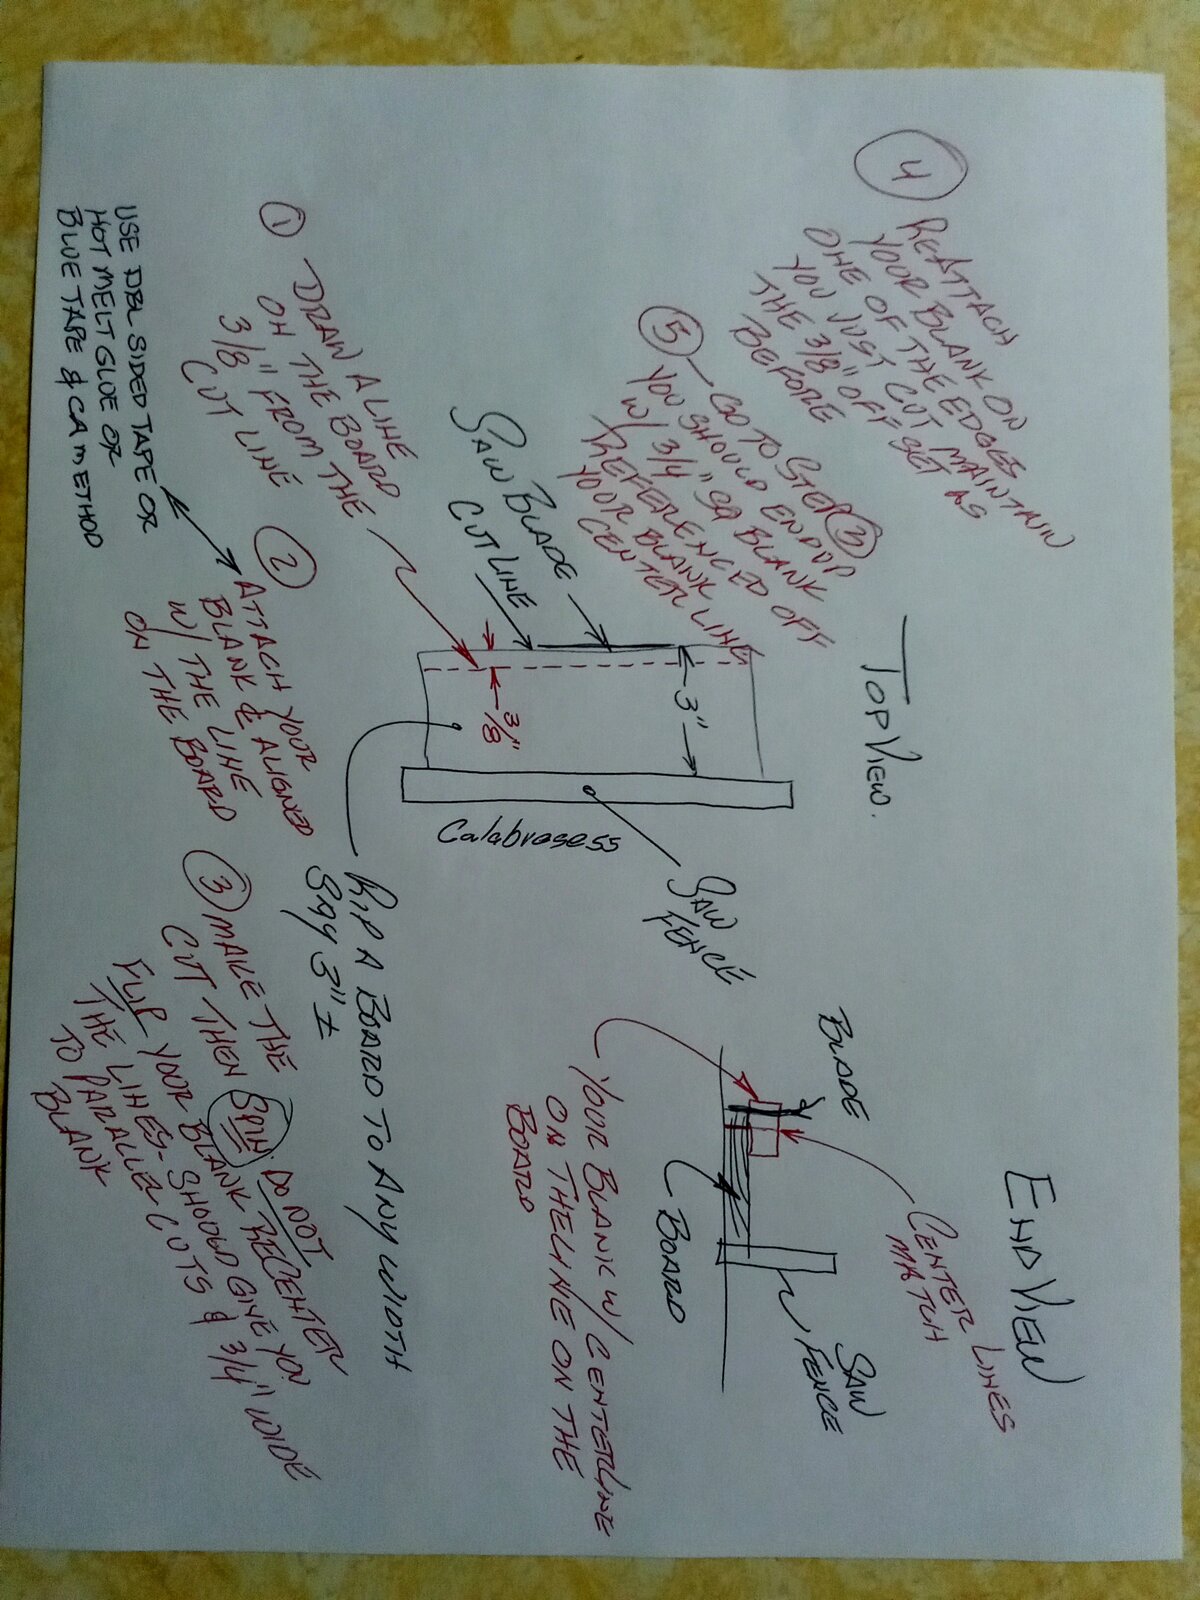 TOP VIEW.
END VIEW
④ REATTACH
YOUR BLANK ON
ONE OF THE EDGES
YOU JUST CUT MAINTAIN
THE 3/8" OFF SET AS
BEFORE
⑤ - GO TO STEP ③
YOU SHOULD END UP
W/ 3/4" SQ BLANK
REFERENCED OFF
YOUR BLANK
CENTER LINE
SAW BLADE
CUT LINE
3"
3/8"
SAW
FENCE
Calabresess
BLADE
CENTER LINES
MATCH
SAW
FENCE
BOARD
YOUR BLANK W/ CENTERLINE
ON THE LINE ON THE
BOARD
① DRAW A LINE
ON THE BOARD
3/8" FROM THE
CUT LINE
RIP A BOARD TO ANY WIDTH
SAY 3" ±
② ATTACH YOUR
BLANK & ALIGNED
W/ THE LINE
ON THE BOARD
USE DBL SIDED TAPE OR
HOT MELT GLUE OR
BLUE TAPE & CA METHOD
③ MAKE THE
CUT THEN SPIN DO NOT
FLIP YOUR BLANK RECENTER
THE LINES - SHOULD GIVE YOU
TO PARALLEL CUTS & 3/4" WIDE
BLANK